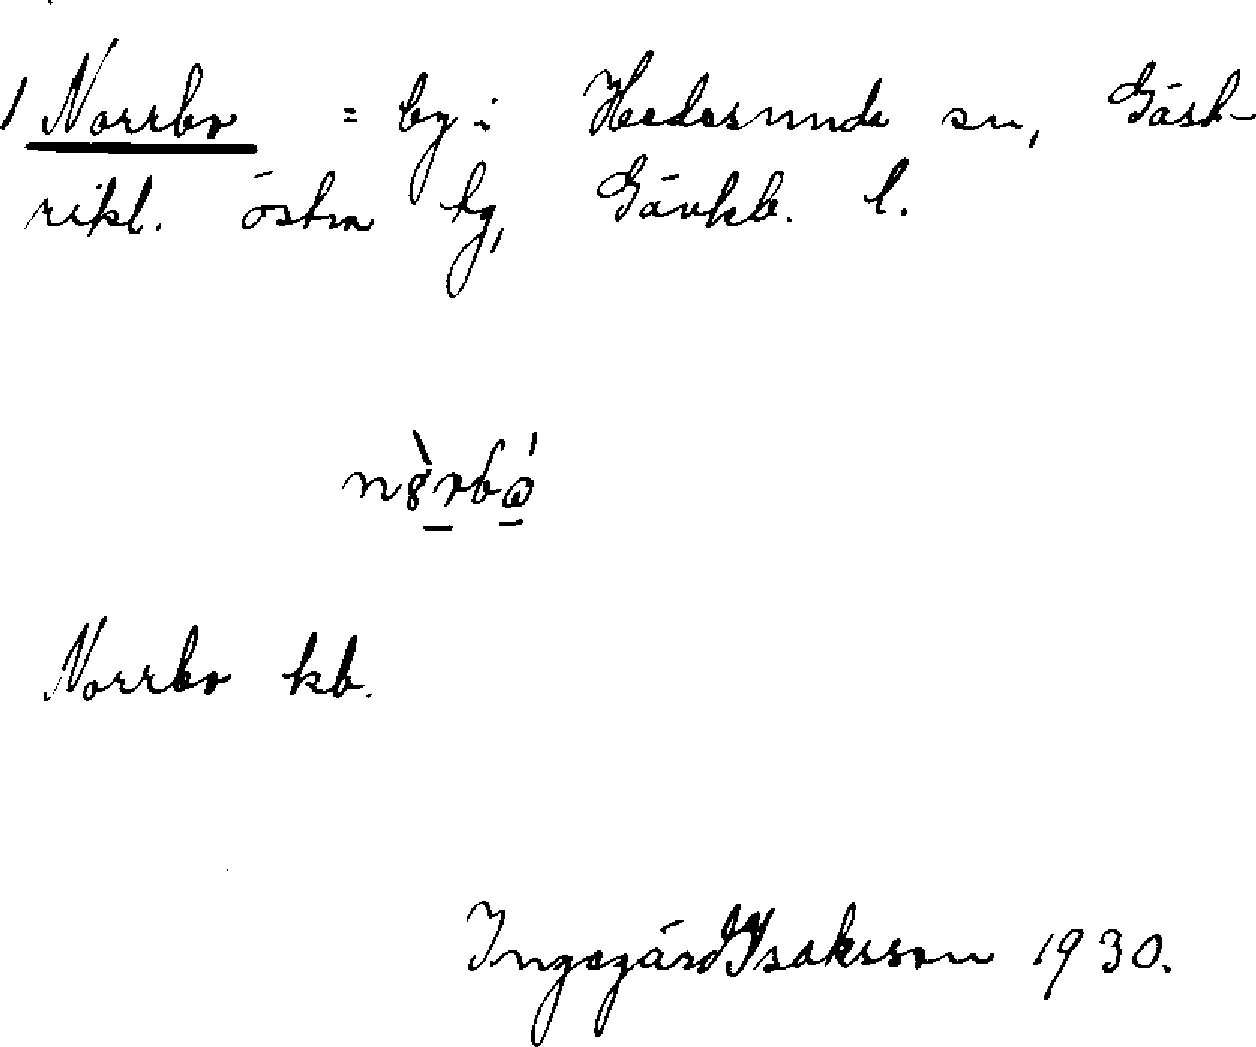 1 Norrbo = by i Hedesunda sn, Gäst-
rikl. östra tg, Gävleb. l.
Norrbo kb.
Ingegärd Isaksson 1930.